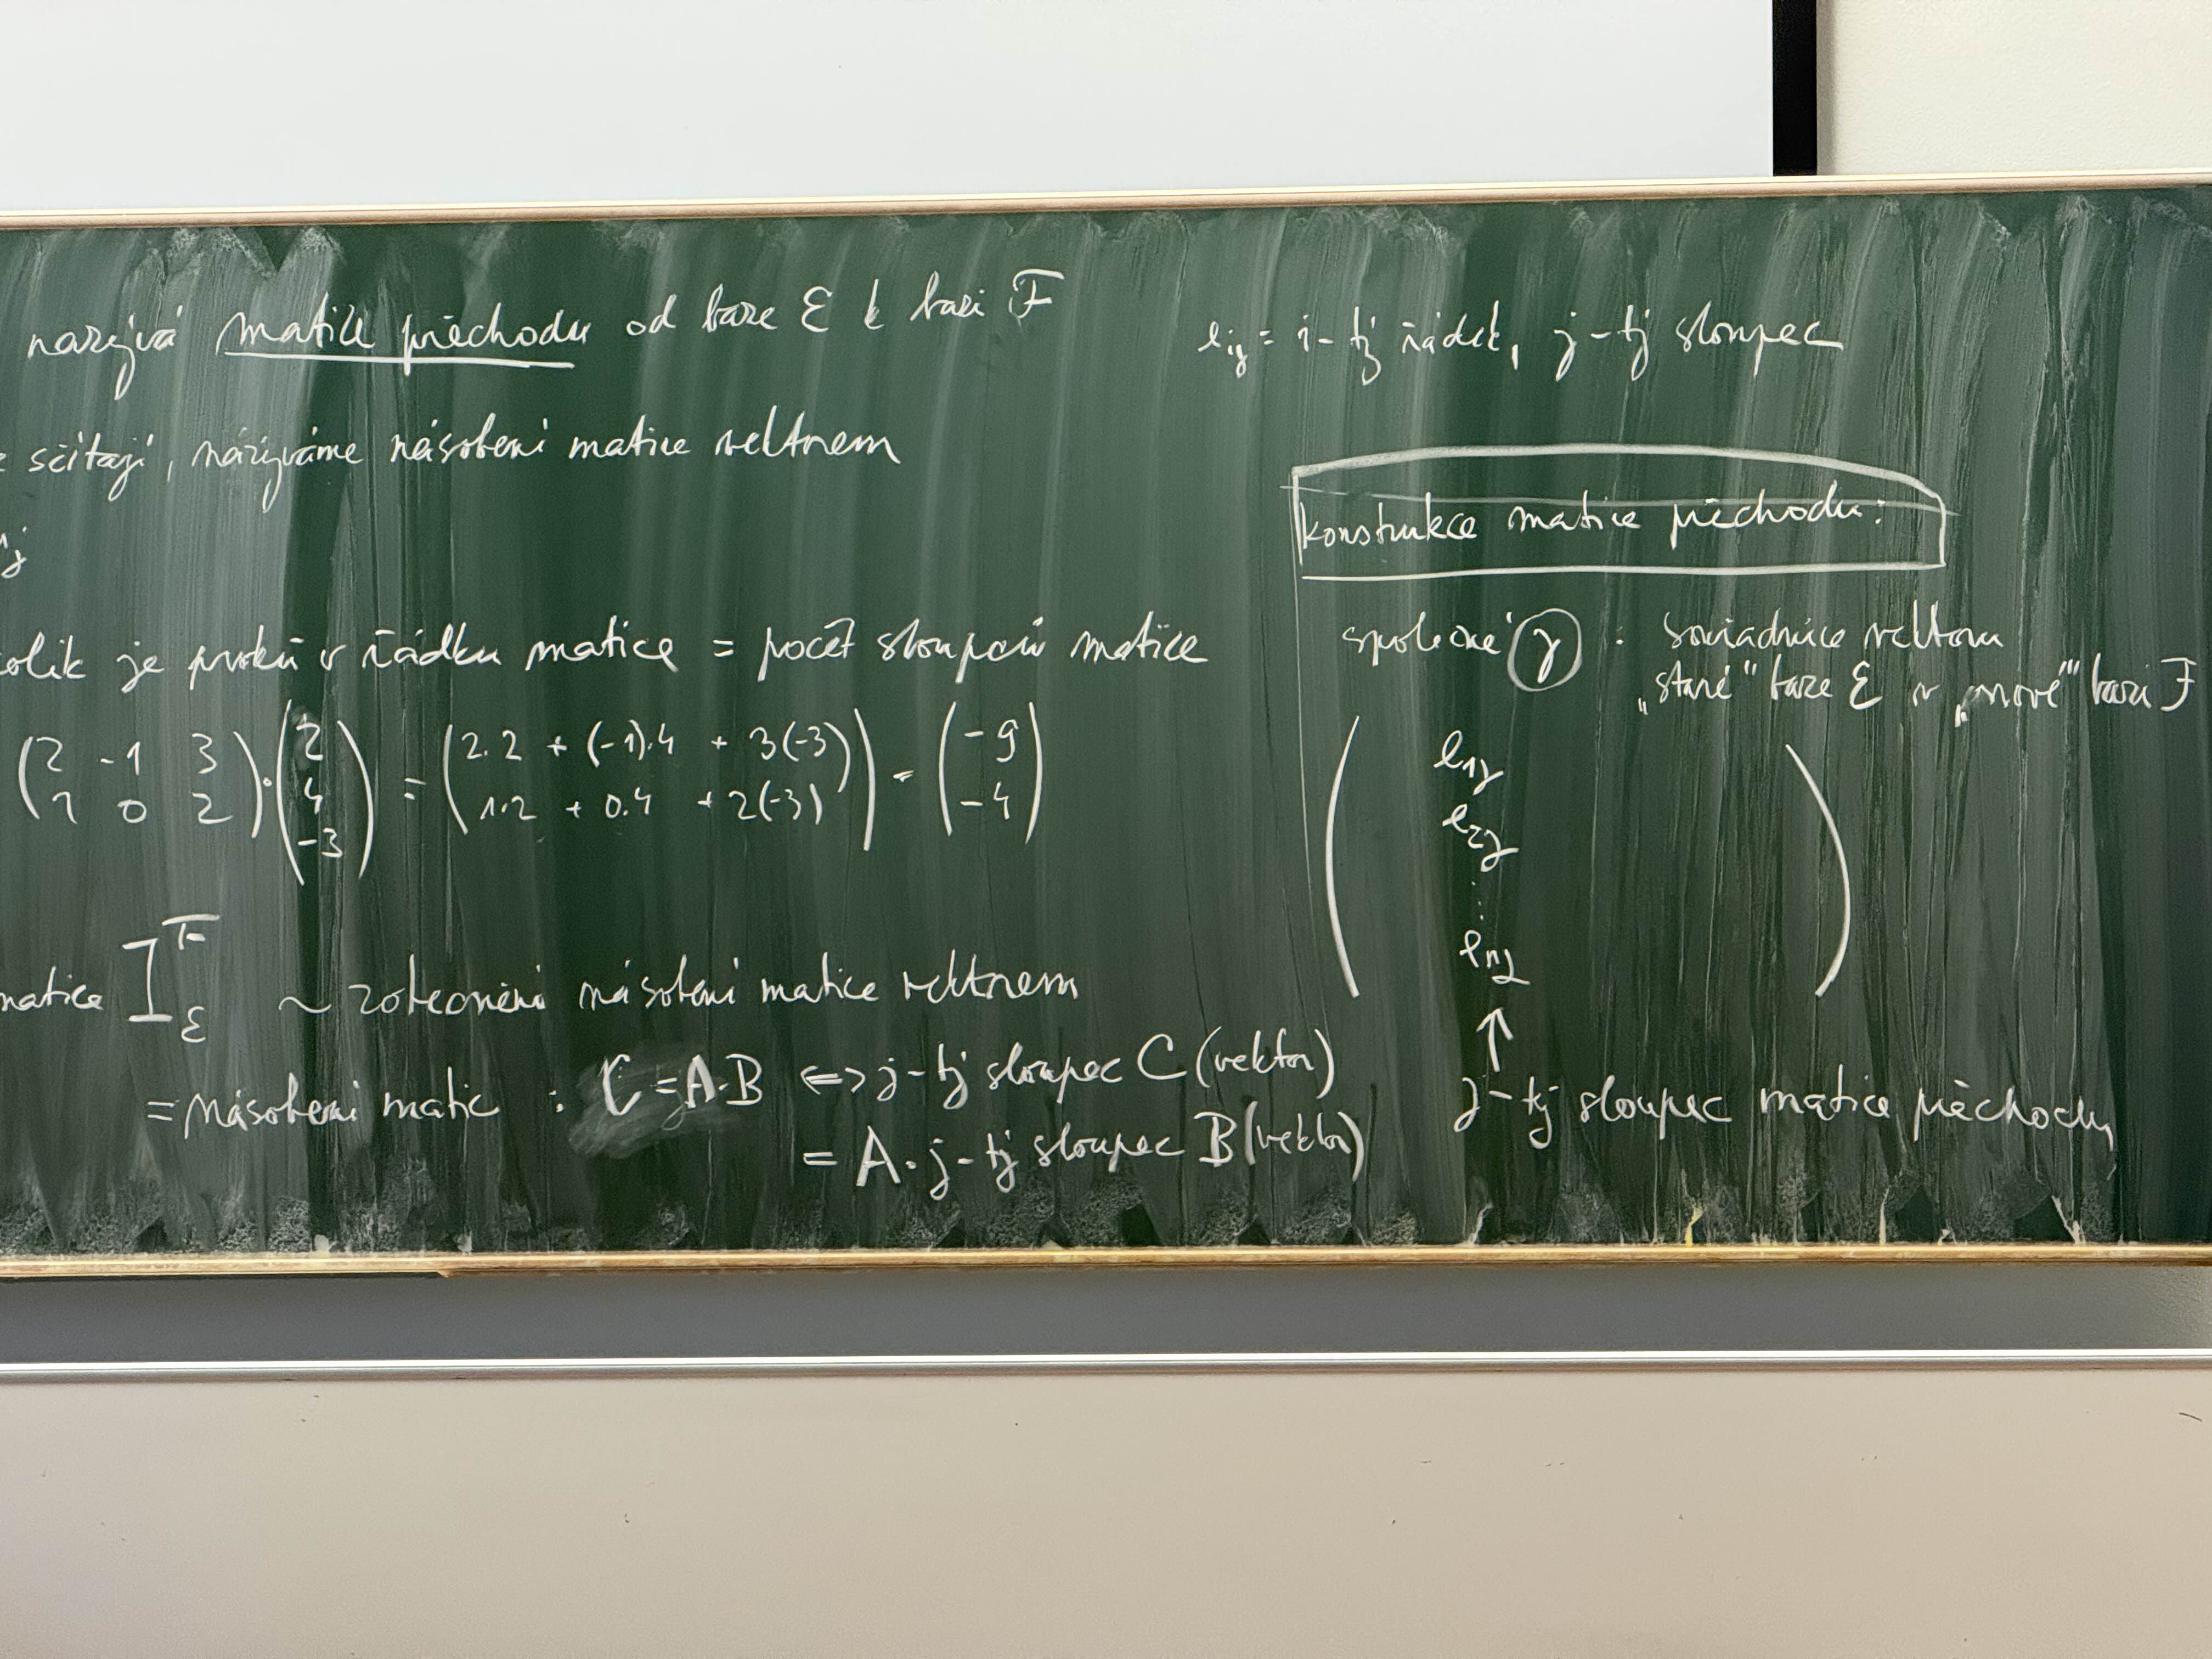 nazývá matice přechodu od báze ℰ k bázi ℱ
sčítají, nazýváme násobení matice vektorem
olik je prvků v řádku matice = počet sloupců matice
(2 -1 3; 1 0 2) · (2; 4; -3) = (2.2 + (-1).4 + 3(-3); 1.2 + 0.4 + 2(-3)) = (-9; -4)
matice I_ℰ^ℱ ~ zobecnění násobení matice vektorem
= násobení matic : C = A·B ⇔ j-tý sloupec C (vektor)
= A · j-tý sloupec B (vektor)
e_ij = i-tý řádek, j-tý sloupec
Konstrukce matice přechodu:
společné j : souřadnice vektoru
„staré" báze ℰ v „nové" bázi ℱ
e_1j
e_2j
⋮
e_nj
↑
j-tý sloupec matice přechodu